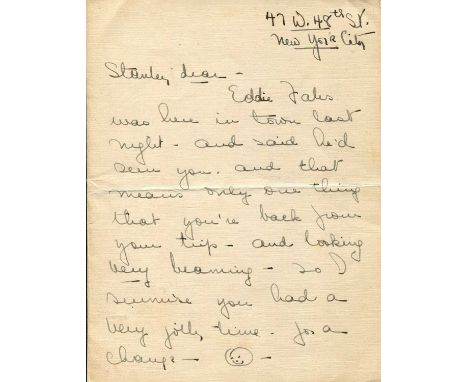 47 W. 48th St.
New York City
Stanley dear -
Eddie Fales
was here in town last
night - and said he'd
seen you. and that
means only one thing
that you're back from
your trip - and looking
very beaming - so I
surmise you had a
very jolly time. for a
change - -